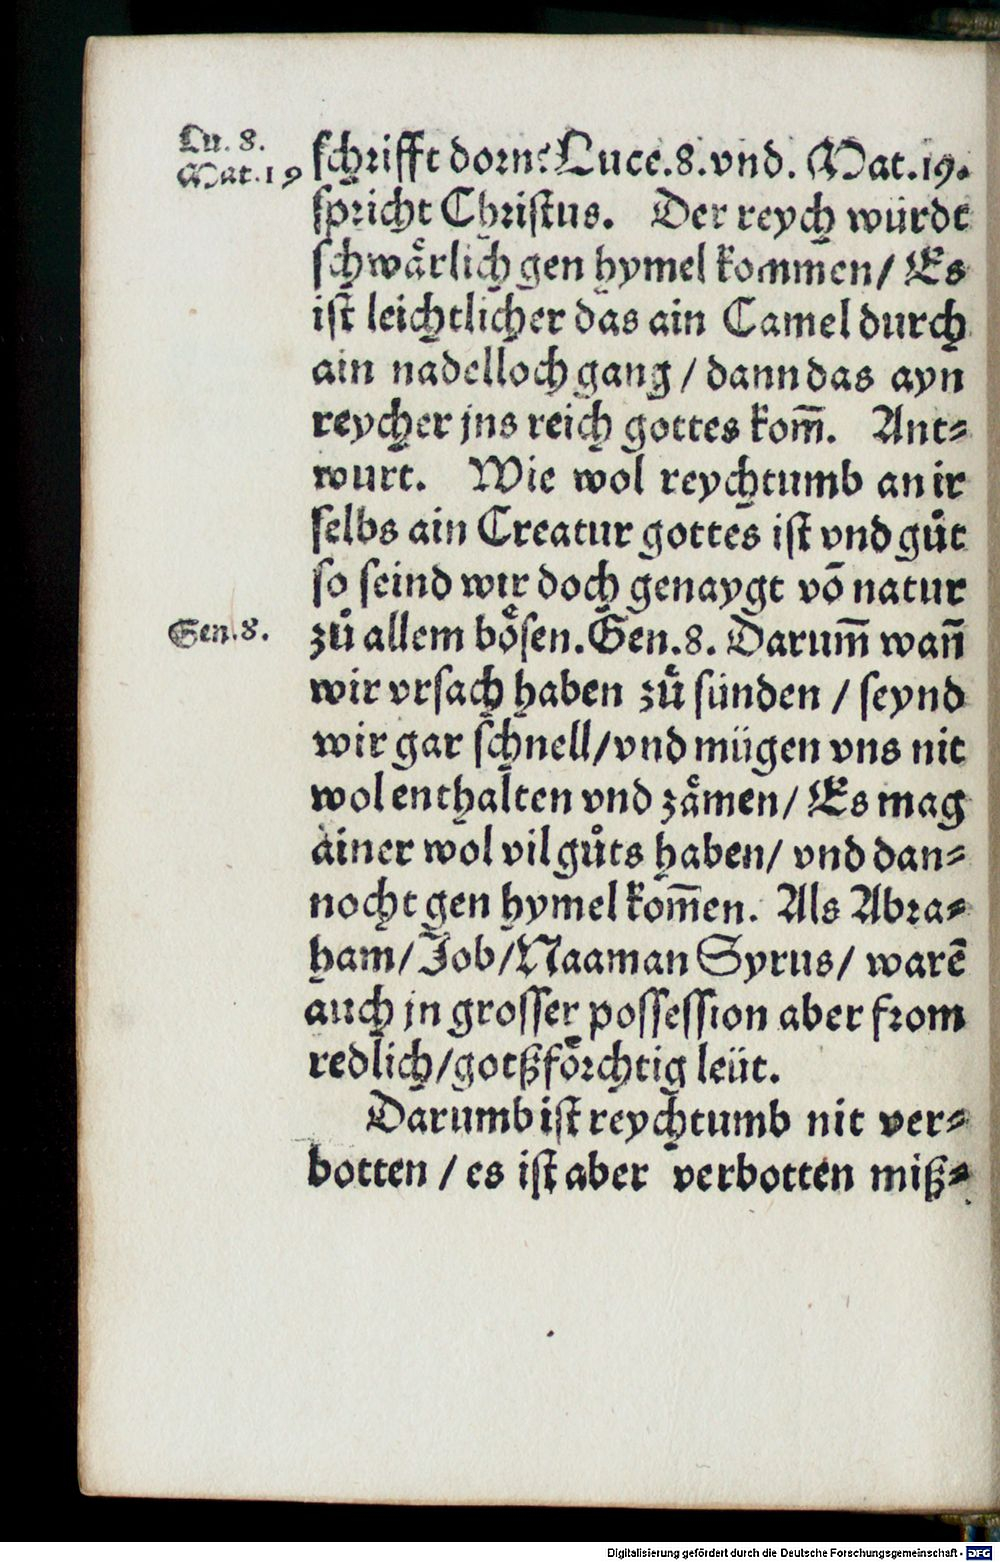 Lu. 8.
Mat. 19
schrifft dorn? Luce. 8. vnd. Mat. 19.
spricht Christus. Der reych würdt
schwaͤrlich gen hymel kommen/ Es
ist leichtlicher das ain Camel durch
ain nadelloch gang / dann das ayn
reycher jns reich gottes kom̄. Ant⸗
wurt. Wie wol reychtumb an ir
selbs ain Creatur gottes ist vnd guͦt
so seind wir doch genaygt vō natur
Gen. 8.
zuͦ allem boͤsen. Gen. 8. Darum̄ wan̄
wir vrsach haben zuͦ sünden / seynd
wir gar schnell/ vnd mügen vns nit
wol enthalten vnd zaͤmen/ Es mag
ainer wol vil guͦts haben/ vnd dan⸗
nocht gen hymel kom̄en. Als Abra⸗
ham/ Job/ Naaman Syrus/ warē
auch jn grosser possession aber from
redlich/ gotßfoͤrchtig leüt.
Darumb ist reychtumb nit ver⸗
botten / es ist aber verbotten miß⸗
Digitalisierung gefördert durch die Deutsche Forschungsgemeinschaft - DFG